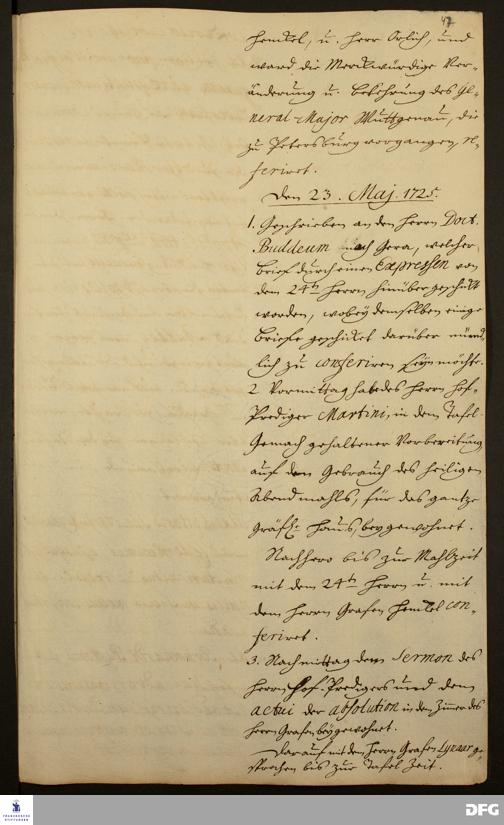 47
Henckel, u. Herr Erlich, und
ward die Merckwürdige Ver-
änderung u. bekehrung des Ge-
neral-Major Wuttgenau, die
zu Petersburg vorgangen, re-
feriret.
Den 23. Maj. 1725.
1. Geschrieben an den Herrn Doct.
Buddeum nach Gera, welcher
brief durch einen Expressen von
dem 24th Herrn hinüber geschickt
worden, wobey demselben einige
briefe geschicket darüber münd-
lich zu conferiren seyn möchte.
2 Vormittag habe des Herrn Hof-
Prediger Martini, in dem Tafel-
Gemach gehaltener Vorbereitung
auf den Gebrauch des heiligen
Abendmahls, für das gantze
Gräfl. Haus, beygewohnet.
Nachhero bis zur Mahlzeit
mit dem 24th Herrn u. mit
dem Herrn Grafen Henckel con-
feriret.
3. Nachmittag dem Sermon des
Herrn Hof-Predigers und dem
actui der absolution in dem Zimmer des
Herrn Grafen beygewohnet.
Darauf mit dem Herrn Grafen Lynaar ge-
sprochen bis zur Tafel Zeit.
FRANCKESCHE
STIFTUNGEN
DFG